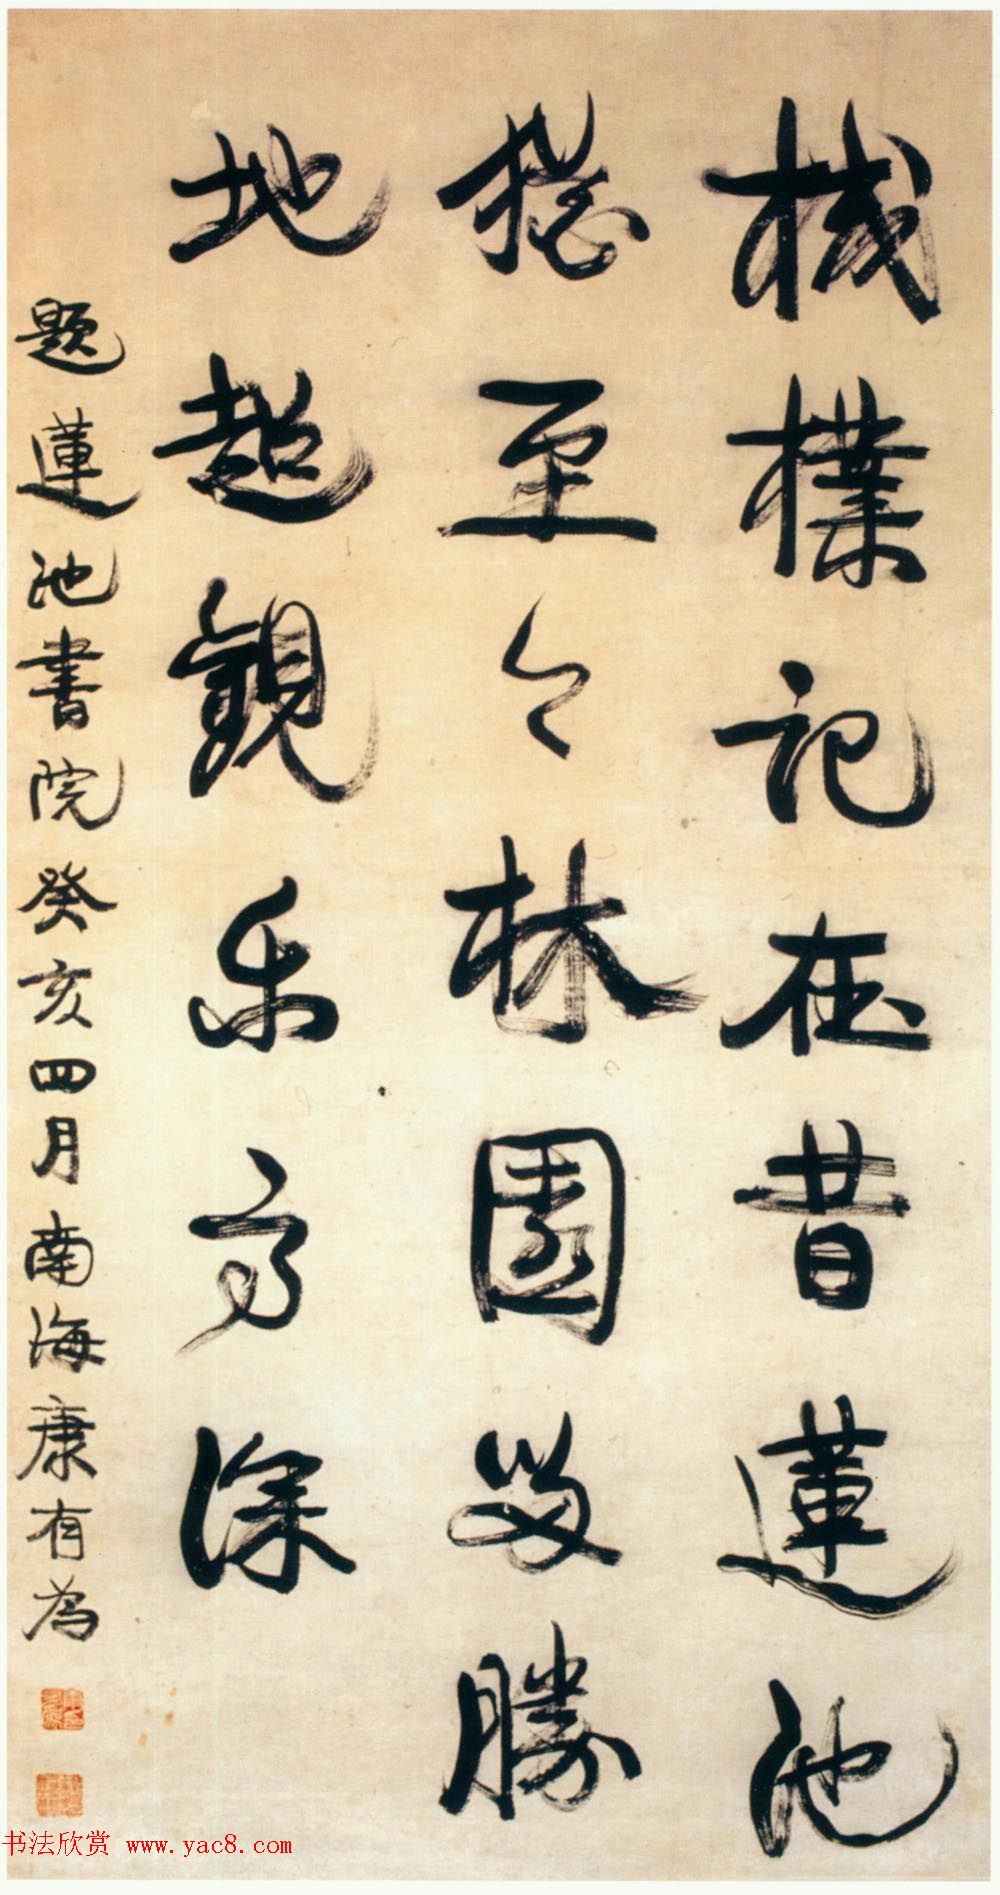 棫樸記在昔蓮池
猶至今林園留勝
地超觀乐高深
題蓮池書院癸亥四月南海康有为
书法欣赏 www.yac8.com